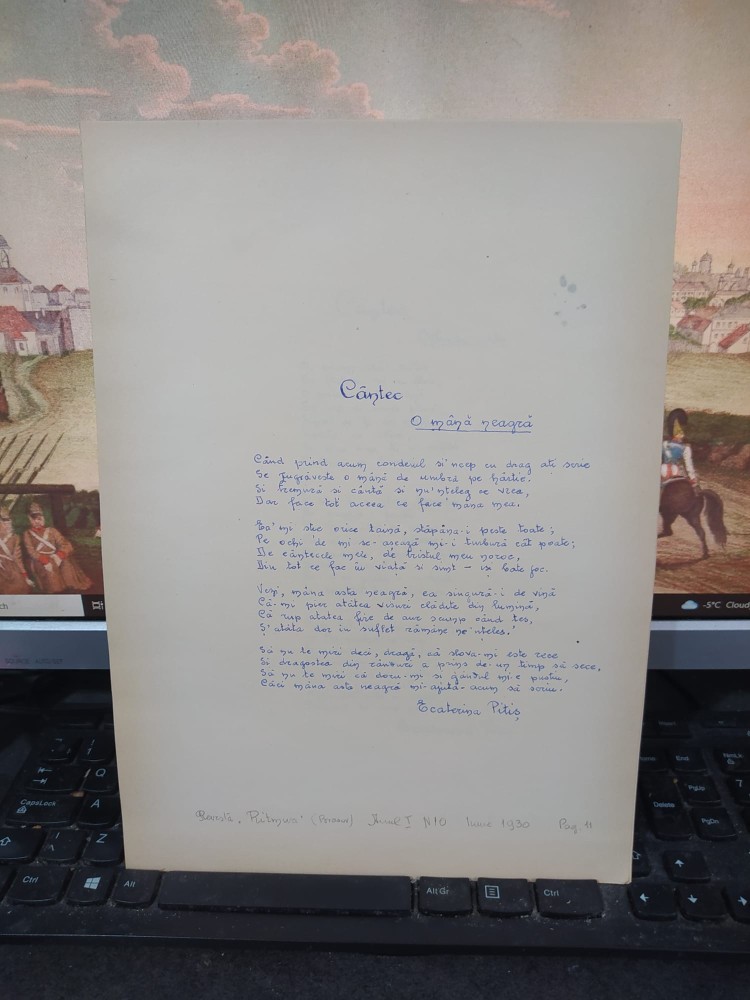 Cântec
O mână neagră
Când prind acum condeiul si'ncep cu drag a-ti scrie
Se zugrăveste o mână de umbră pe hârtie.
Si tremură si cântă si nu'nteleg ce vrea,
Dar face tot aceea ce face mâna mea.
Ea'mi stie orice taină, stăpână-i peste toate;
Pe ochi de mi se-asează mi-i turbură cât poate;
De cântecele mele, de tristul meu noroc,
Din tot ce fac în viată si simt – isi bate joc.
Vezi, mâna asta neagră, ea singură-i de vină
Că-mi pier atâtea visuri clădite din lumină,
Că rup atatea fire de aur scump când tes,
S'atâta dor în suflet rămâne ne'nteles.
Să nu te miri deci, dragă, că slova-mi este rece
Si dragostea din rânduri a prins de-un timp să sece,
Să nu te miri că doru-mi si gândul mi-e pustiu,
Căci mâna asta neagră mi-ajută-acum să scriu.
Ecaterina Pitiș
Revista „Ritmuri" (Brasov) Anul I N10 Iunie 1930 Pag. 11
-5°C Cloud
CapsLock
A
Z
Ctrl
Alt
Alt Gr
Ctrl
End
PgUp
Delete
PgDn